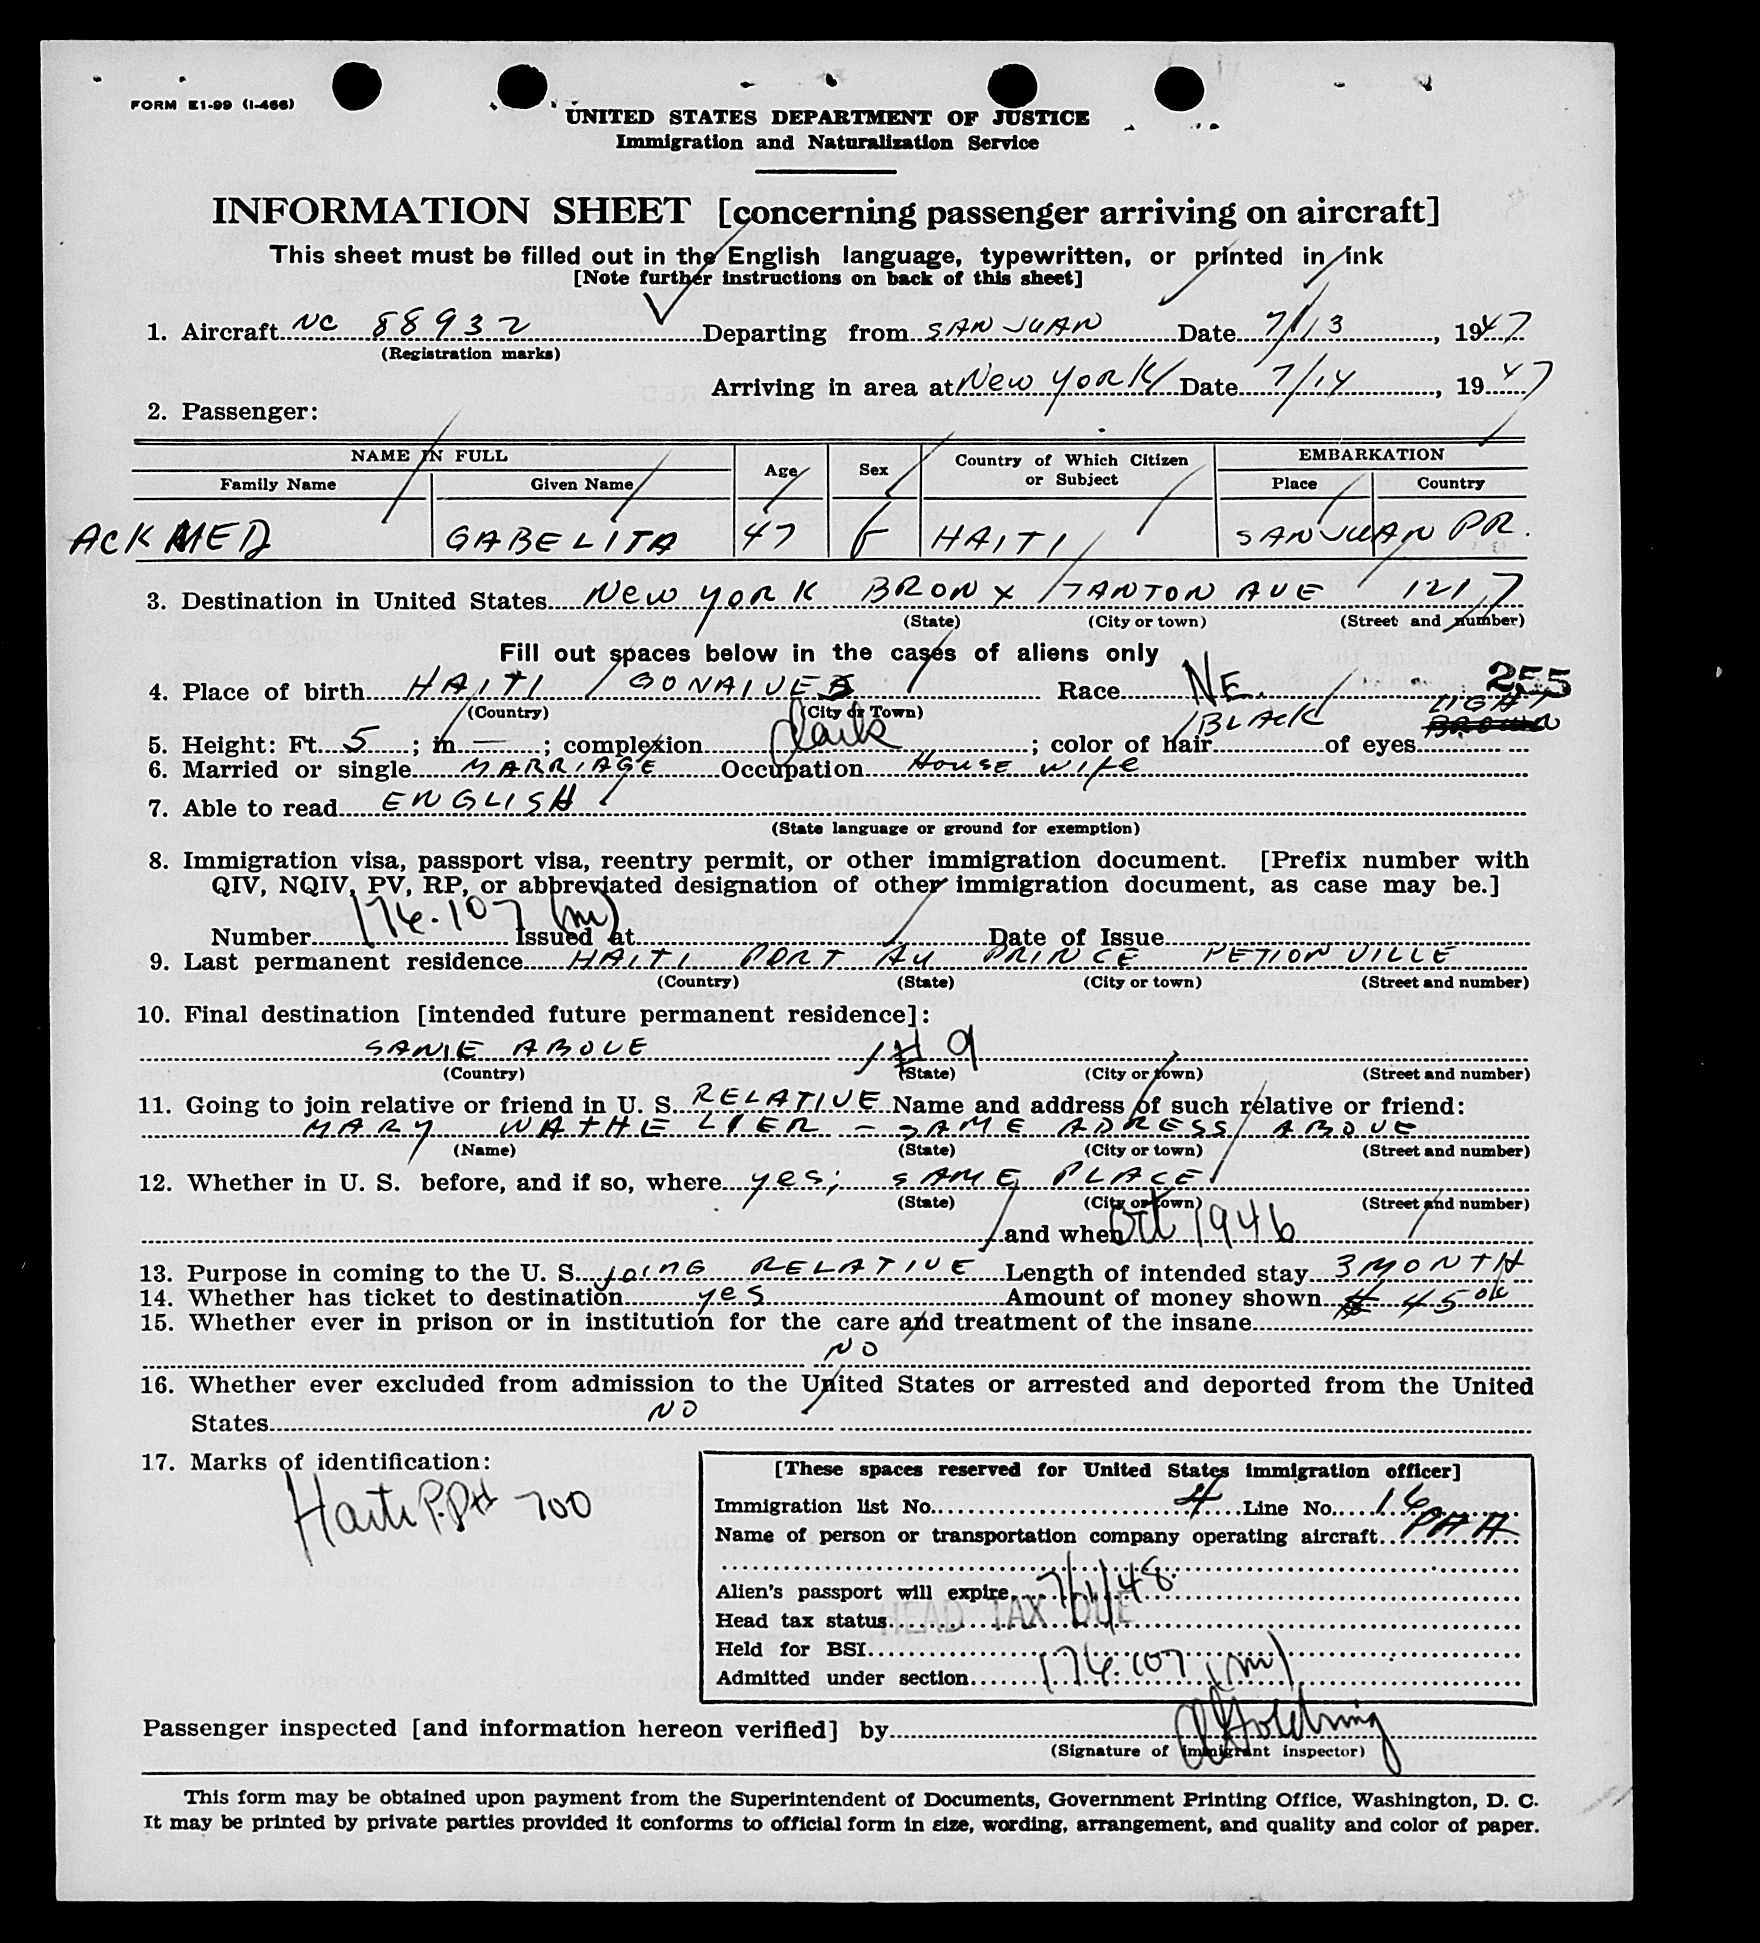 FORM E1-99 (I-466)
UNITED STATES DEPARTMENT OF JUSTICE
Immigration and Naturalization Service
INFORMATION SHEET [concerning passenger arriving on aircraft]
This sheet must be filled out in the English language, typewritten, or printed in ink
[Note further instructions on back of this sheet]
1. Aircraft NC 88932 Departing from SAN JUAN Date 7/13, 1947
(Registration marks)
Arriving in area at New York Date 7/14, 1947
2. Passenger:
NAME IN FULL Age Sex Country of Which Citizen or Subject EMBARKATION
Family Name Given Name Place Country
ACKMED GABELITA 47 F HAITI SAN JUAN PR.
3. Destination in United States New York BRONX TANTON AVE 1217
(State) (City or town) (Street and number)
Fill out spaces below in the cases of aliens only
4. Place of birth HAITI GONAIVES Race NE. 255
(Country) (City or Town)
LIGHT
5. Height: Ft. 5; in —; complexion dark; color of hair BLACK of eyes BROWN
6. Married or single MARRIAGE Occupation House wife
7. Able to read ENGLISH
(State language or ground for exemption)
8. Immigration visa, passport visa, reentry permit, or other immigration document. [Prefix number with
QIV, NQIV, PV, RP, or abbreviated designation of other immigration document, as case may be.]
Number 176.107 (m) Issued at Date of Issue
9. Last permanent residence HAITI PORT AU PRINCE PETION VILLE
(Country) (State) (City or town) (Street and number)
10. Final destination [intended future permanent residece]:
SAME ABOVE # 9
(Country) (State) (City or town) (Street and number)
11. Going to join relative or friend in U. S. RELATIVE Name and address of such relative or friend:
MARY WATHELIER - SAME ADRESS ABOVE
(Name) (State) (City or town) (Street and number)
12. Whether in U. S. before, and if so, where yes; SAME PLACE
(State) (City or town) (Street and number)
and when Oct 1946
13. Purpose in coming to the U. S. joing RELATIVE Length of intended stay 3 MONTH
14. Whether has ticket to destination yes Amount of money shown $ 45 ok
15. Whether ever in prison or in institution for the care and treatment of the insane
NO
16. Whether ever excluded from admission to the United States or arrested and deported from the United
States NO
17. Marks of identification:
Haiti P.Pt 700
[These spaces reserved for United States immigration officer]
Immigration list No. 4 Line No. 16
Name of person or transportation company operating aircraft PAA
Alien's passport will expire 7/1/48.
Head tax status HEAD TAX DUE
Held for BSI
Admitted under section 176.107 (m)
Passenger inspected [and information hereon verified] by A Goldring
(Signature of immigrant inspector)
This form may be obtained upon payment from the Superintendent of Documents, Government Printing Office, Washington, D. C.
It may be printed by private parties provided it conforms to official form in size, wording, arrangement, and quality and color of paper.